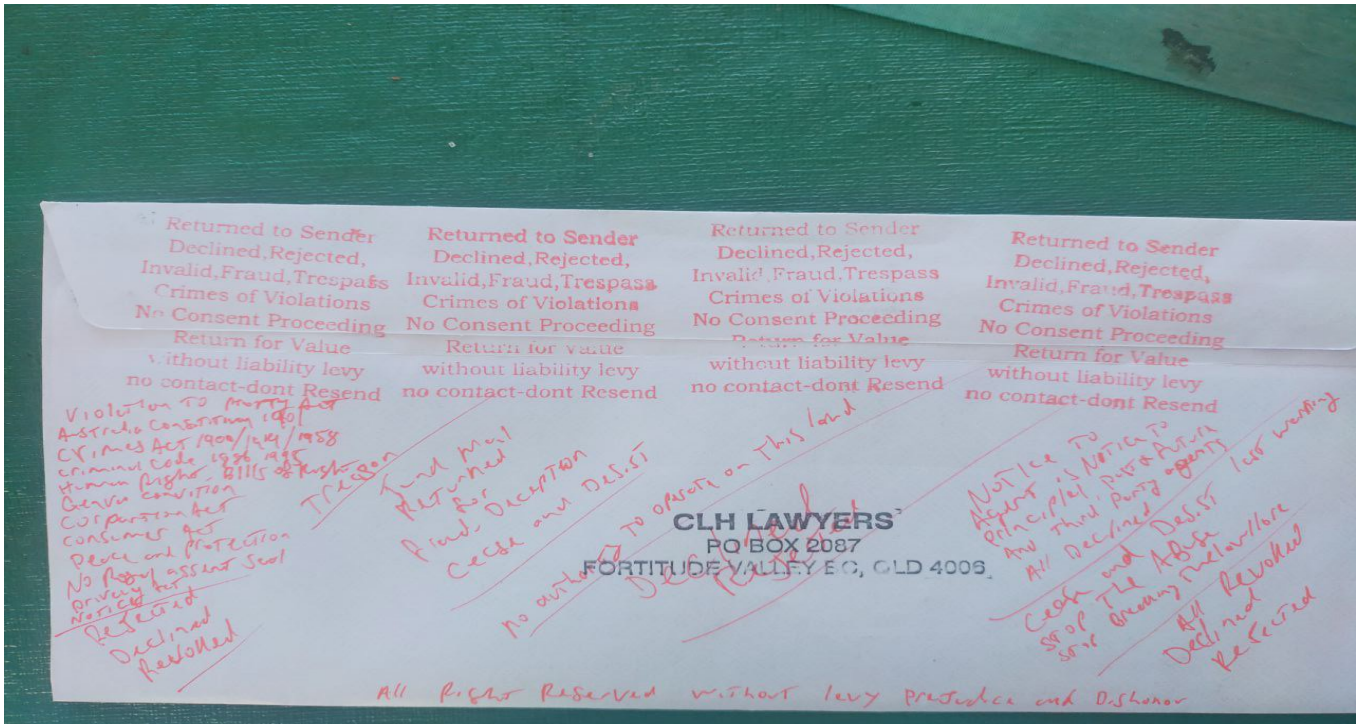 Returned to Sender
Declined,Rejected,
Invalid,Fraud,Trespass
Crimes of Violations
No Consent Proceeding
Return for Value
without liability levy
no contact-dont Resend
Returned to Sender
Declined,Rejected,
Invalid,Fraud,Trespass
Crimes of Violations
No Consent Proceeding
Return for Value
without liability levy
no contact-dont Resend
Returned to Sender
Declined,Rejected,
Invalid,Fraud,Trespass
Crimes of Violations
No Consent Proceeding
Return for Value
without liability levy
no contact-dont Resend
Returned to Sender
Declined,Rejected,
Invalid,Fraud,Trespass
Crimes of Violations
No Consent Proceeding
Return for Value
without liability levy
no contact-dont Resend
Violation To Act
Australia Constitution 1901
Crimes Act 1900/1914/1958
Criminal Code 1995
Human Right. Bills of Right
Corporation Act
Consumer Act
Peace and Protection
No assent Seal
Privacy Act
Rejected
Declined
Revolked
Treason
Mail
Returned
for
Fraud, Deception
Cease and Desist
no to operate on This land
Declined
CLH LAWYERS
PO BOX 2087
FORTITUDE VALLEY BC, QLD 4006
Notice To
Agent is Notice To
Principle/
And Third Party agents
All Declined last warning
Cease and Desist
Stop The Abuse
Stop Breaking The law/lore
All Revolked
Declined
Rejected
All Right Reserved without levy prejudice and Dishonor